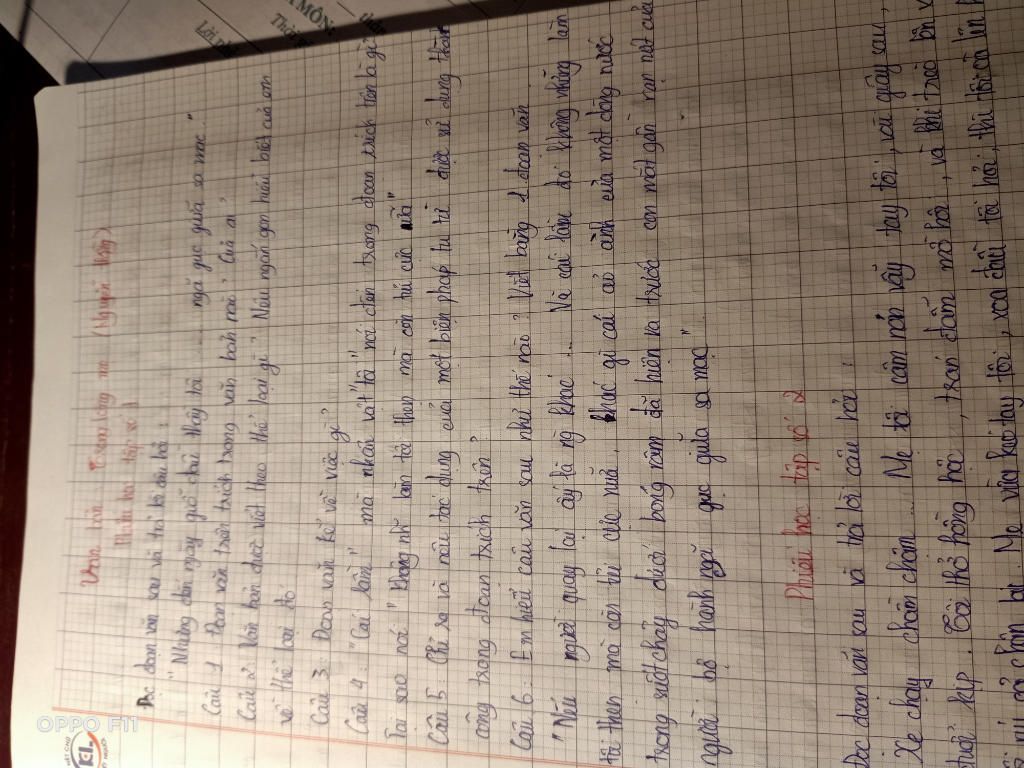 Văn bản: Trong lòng mẹ (Nguyên Hồng)
Phiếu học tập số 1
Đọc đoạn văn sau và trả lời câu hỏi:
"Nhưng đến ngày giỗ đầu thầy tôi ..... ngã gục giữa sa mạc."
Câu 1 Đoạn văn trên trích trong văn bản nào? Của ai?
Câu 2: Văn bản được viết theo thể loại gì? Nêu ngắn gọn hiểu biết của em
về thể loại đó
Câu 3: Đoạn văn kể về việc gì?
Câu 4: "Cái lầm" mà nhân vật "tôi" nói đến trong đoạn trích trên là gì
Tại sao nói "không những làm tôi thẹn mà còn tủi cực nữa"
Câu 5: Chỉ ra và nêu tác dụng của một biện pháp tu từ được sử dụng thành
công trong đoạn trích trên?
Câu 6: Em hiểu câu văn sau như thế nào? Viết bằng 1 đoạn văn
"Nếu người quay lại ấy là ng khác .... Và cái lầm đó không những làm
tôi thẹn mà còn tủi cực nữa, khác gì cái ảo ảnh của một dòng nước
trong suốt chảy dưới bóng râm đã hiện ra trước con mắt gần rạn nứt của
người bộ hành ngã gục giữa sa mạc"
Phiếu học tập số 2
Đọc đoạn văn sau và trả lời câu hỏi:
Xe chạy chầm chậm ... Mẹ tôi cầm nón vẫy tay tôi, vài giây sau,
đuổi kịp. Tôi thở hồng hộc, trán đẫm mồ hôi, và khi trèo lên
chân lại. Mẹ vừa kéo tay tôi, xoa đầu tôi hỏi, thì tôi òa lên
OPPO F11